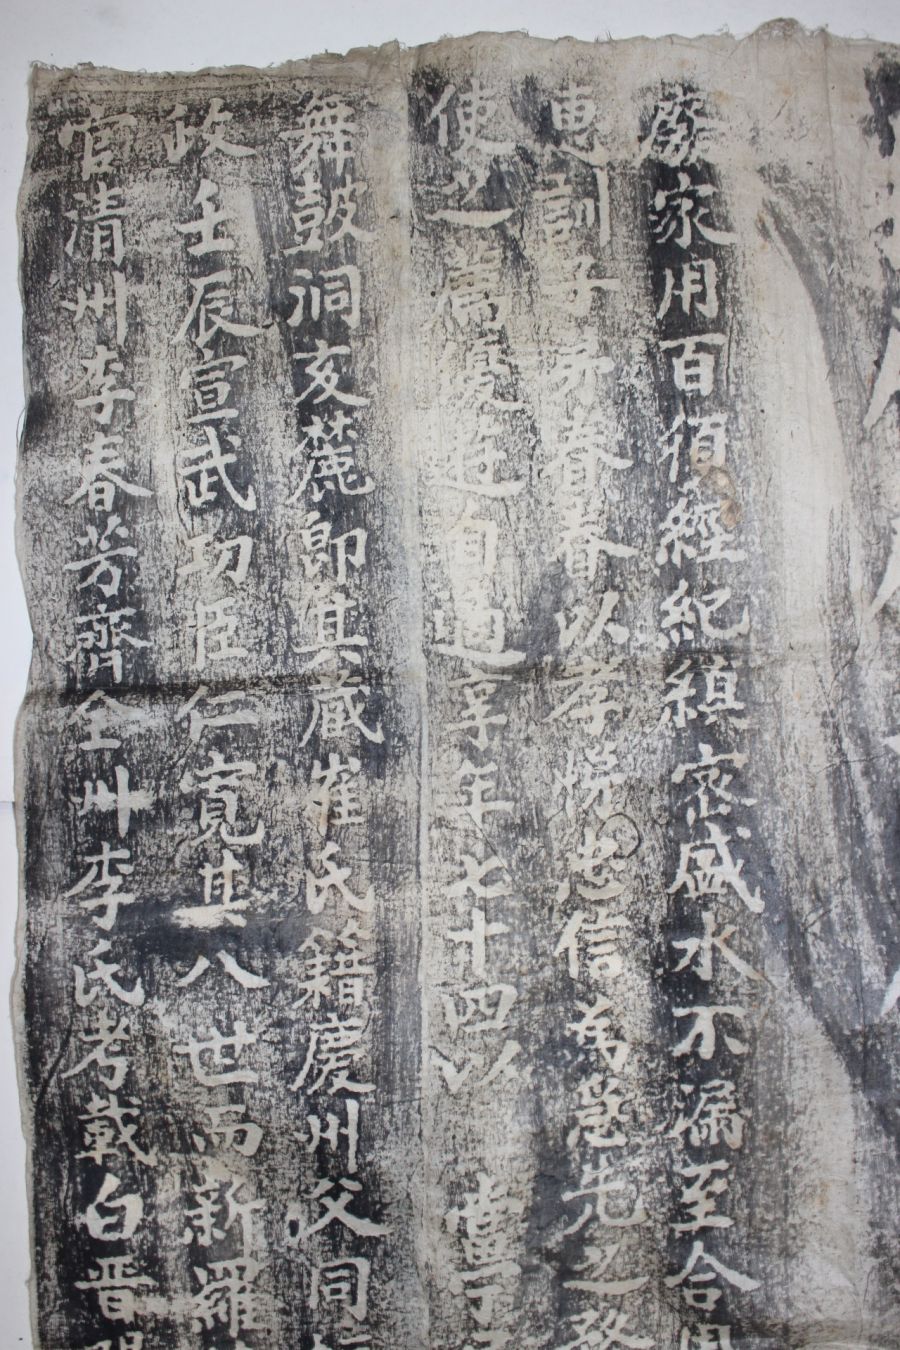 廢家用百須經紀縝密盛水不漏至合用
惠訓子孫眷眷以孝悌忠信爲急先之務
使之篤優遊自適享年七十四以
舞鼓洞亥麓卽其藏崔氏籍慶州父同
政壬辰宣武功臣仁寬其八世而新羅
官清州李春芳齊全州李氏考載白晋陽